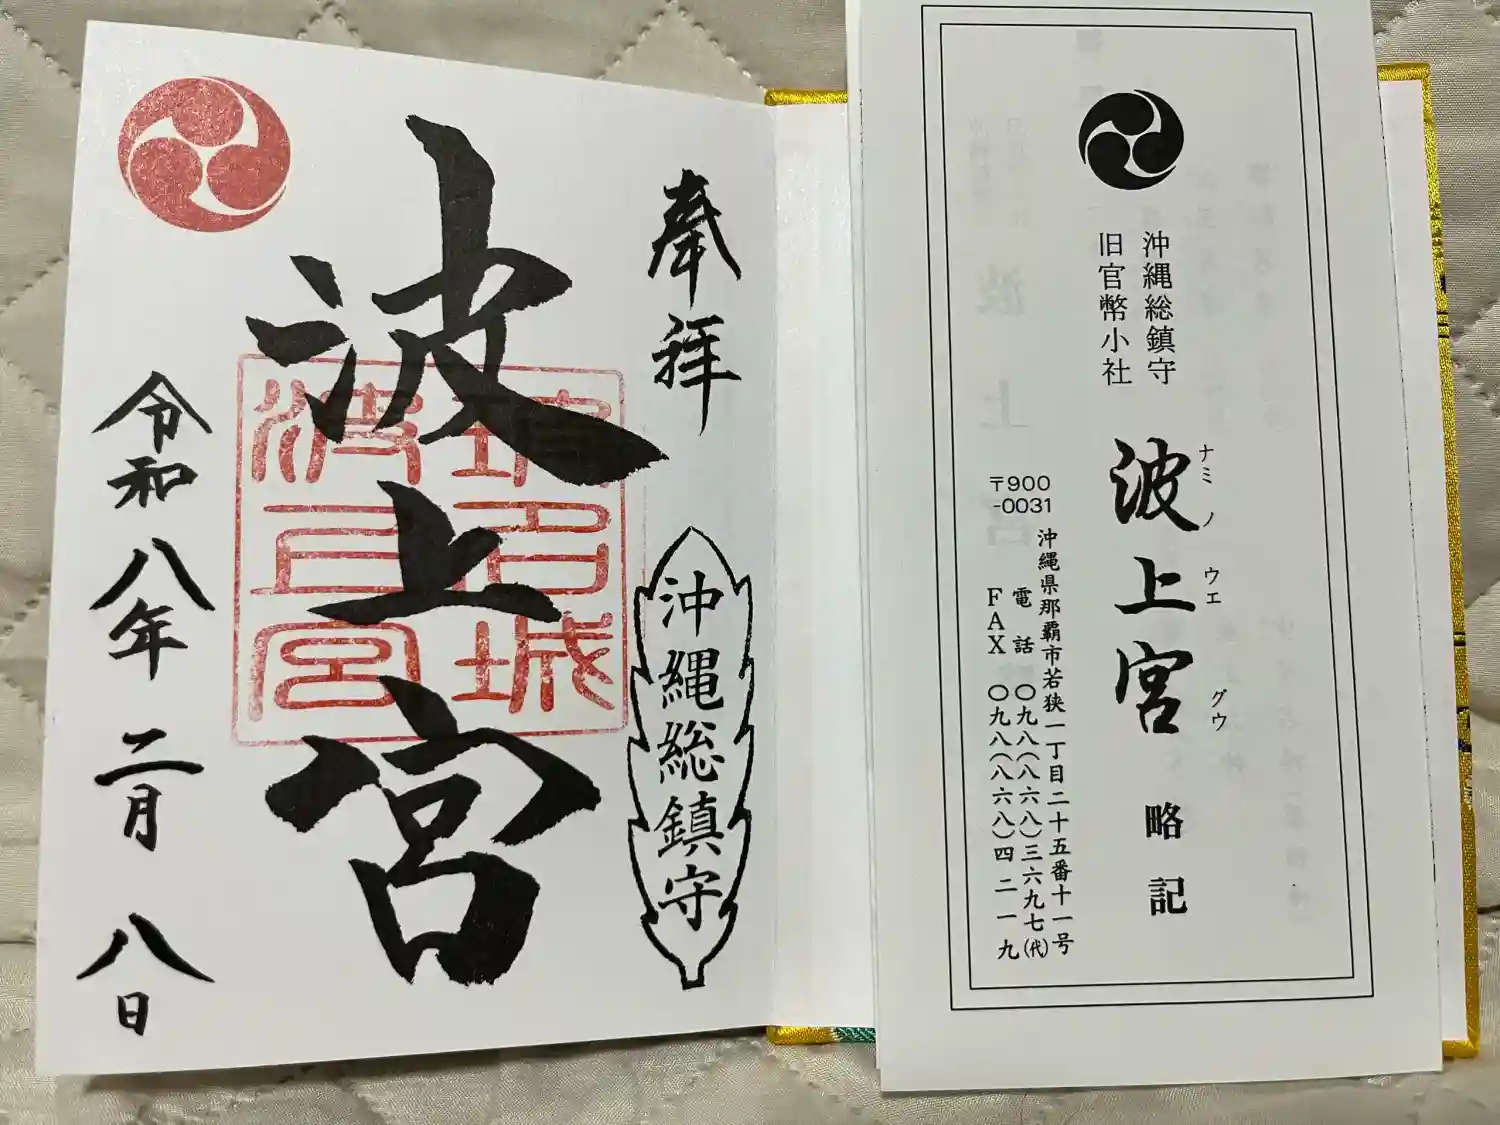 奉拝
沖縄総鎮守
波上宮
令和八年二月八日
沖縄総鎮守
旧官幣小社
波上宮略記
ナミノウエグウ
〒900
-0031
沖縄県那覇市若狭一丁目二十五番十一号
電話〇九八(八六八)三六九七(代)
FAX〇九八(八六八)四二一九